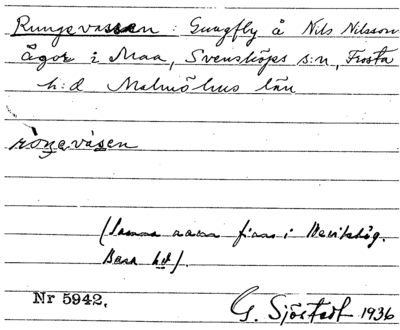 Rungevassen : Gungfly å Nils Nilssons
ägor i Maa, Svensköps s:n, Frosta
h:d Malmöhus län
roŋevásen
(Samma namn finns i
Bara hd).
Nr 5942.
G. Sjöstedt 1936